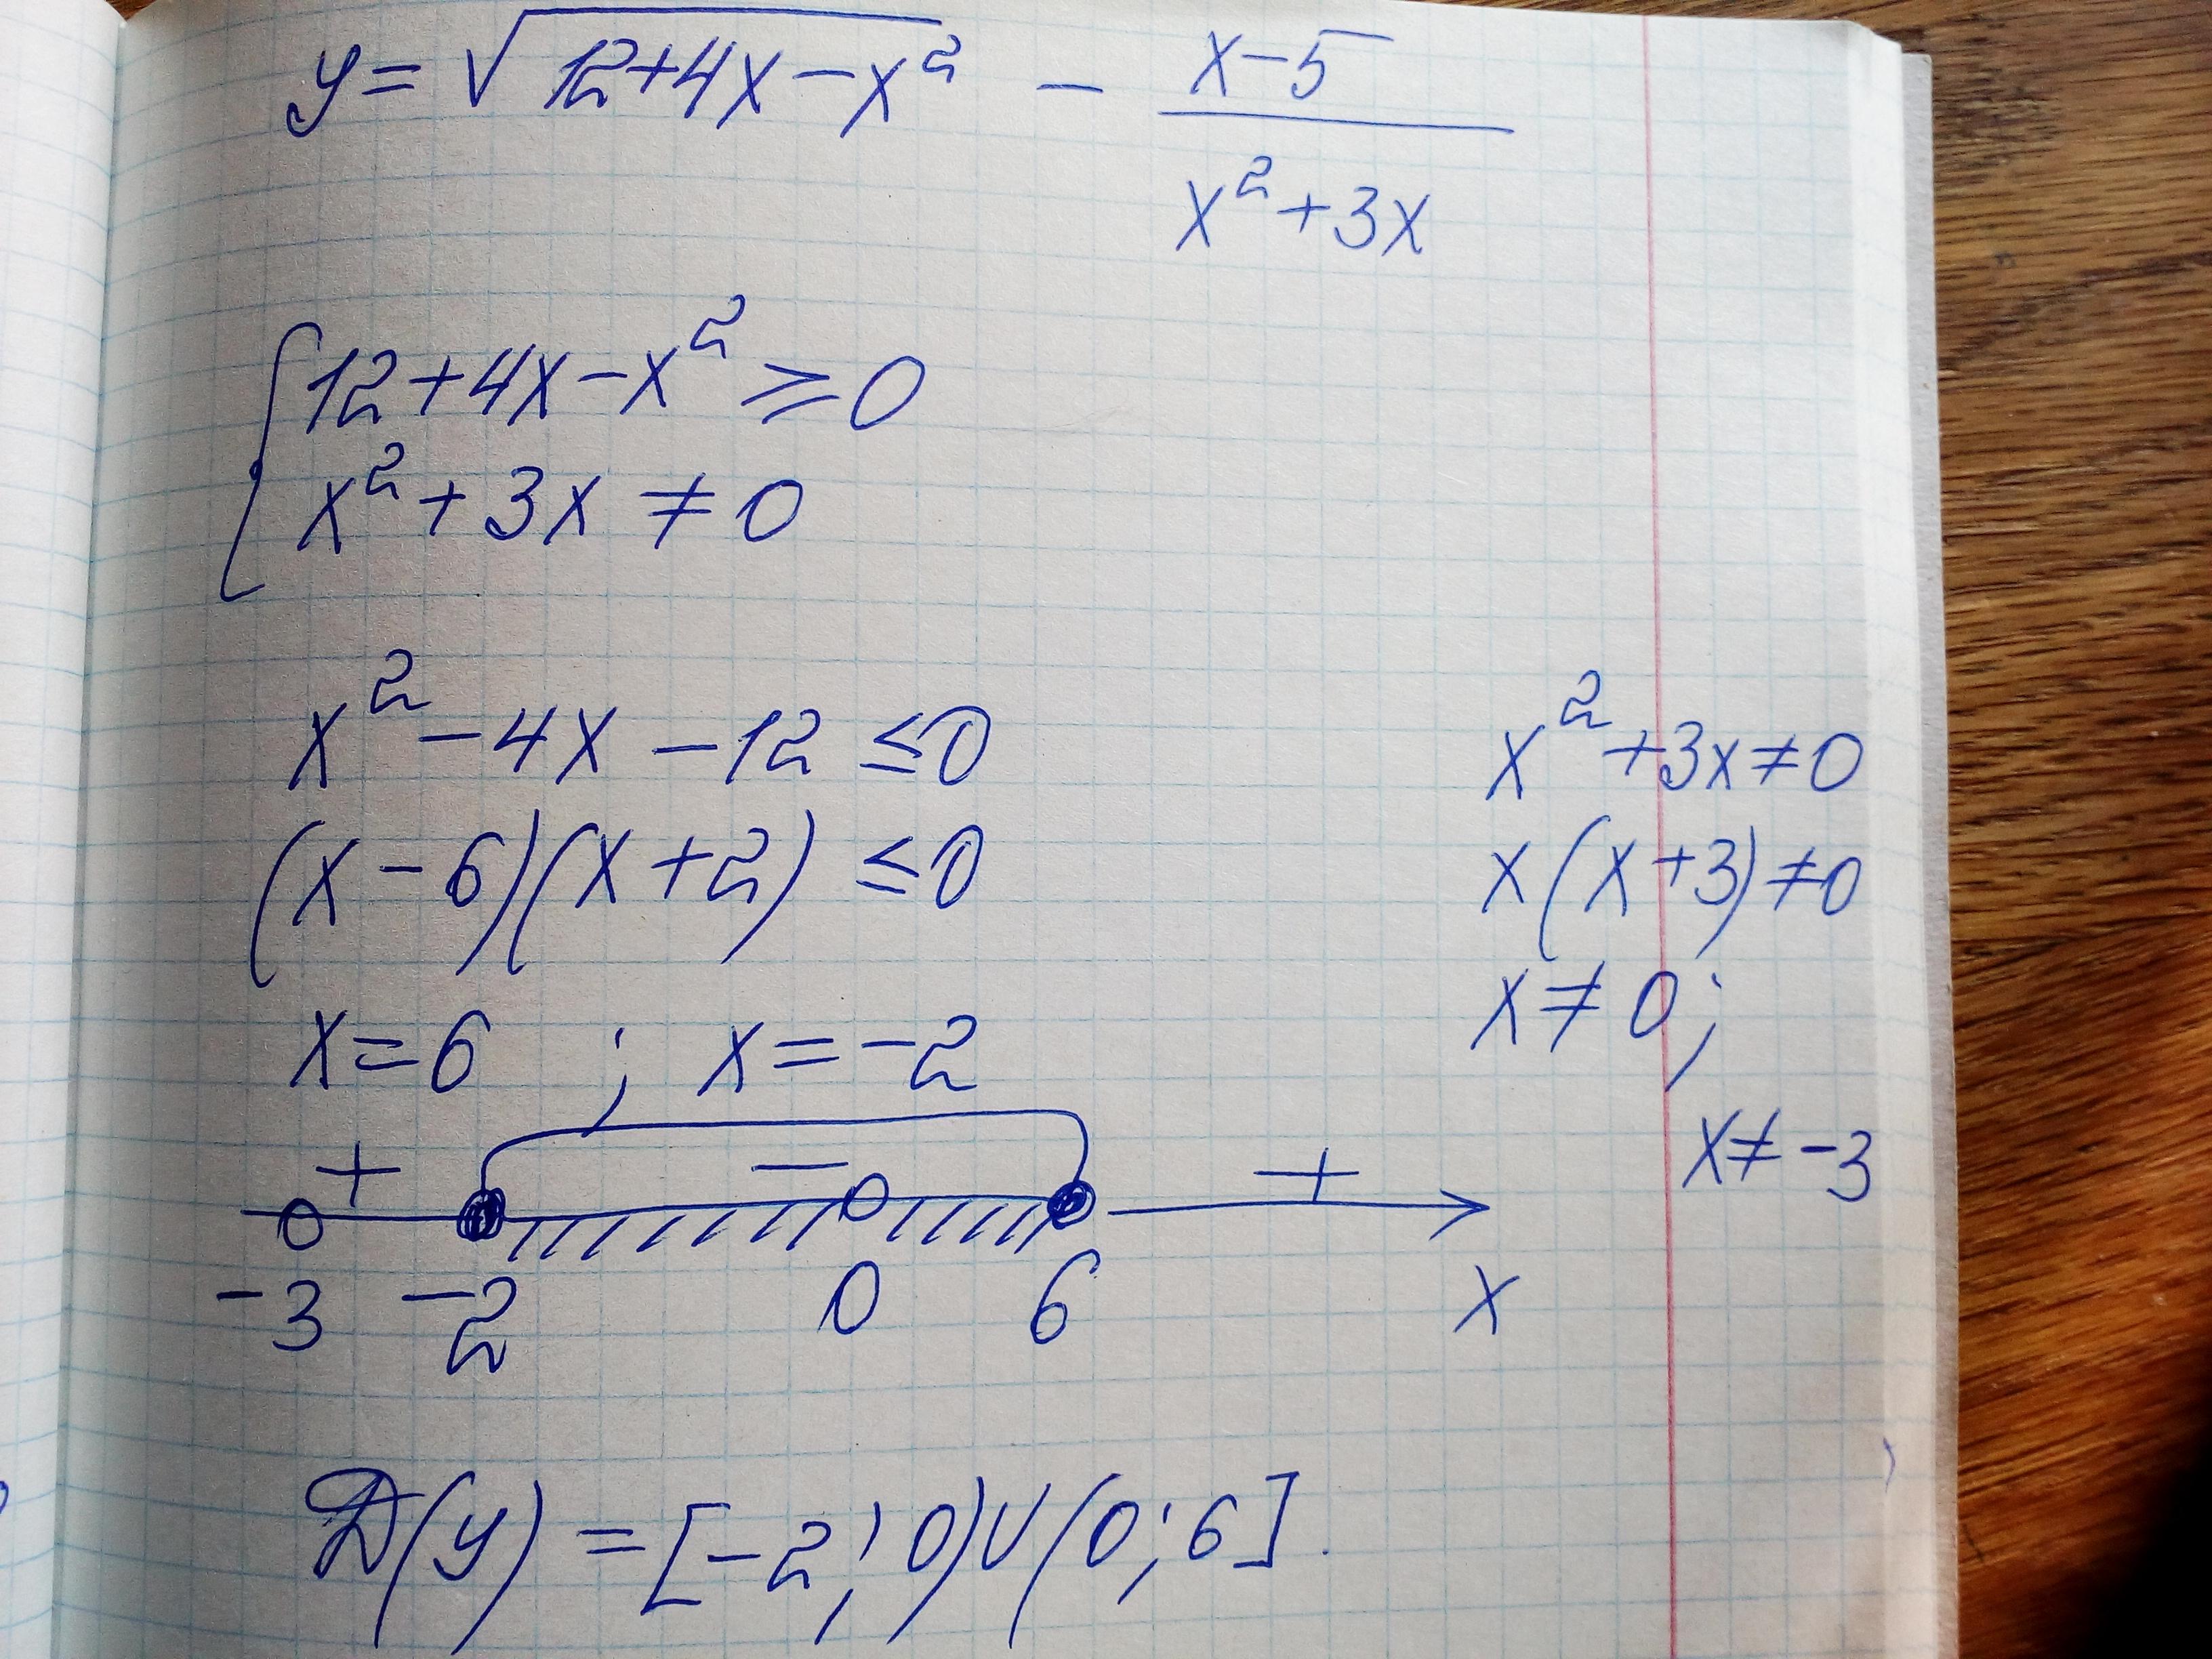 y = √(12+4x−x²) − (x−5)/(x²+3x)
{ 12+4x−x² ≥ 0
x²+3x ≠ 0
x²−4x−12 ≤ 0
(x−6)(x+2) ≤ 0
x=6 ; x=−2
x²+3x≠0
x(x+3)≠0
x≠0;
x≠−3
+ − +
−3 −2 0 6 x
D(y) = [−2; 0)∪(0; 6].